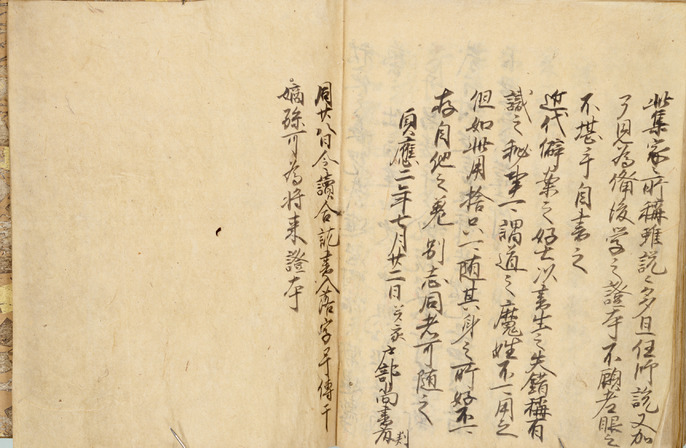 此集家々所稱雖説々多且任師説又加
了見為備後学之證本不顧老眼之
不堪手自書之
近代僻案之好士以書生之失錯稱有
識之秘事可謂道之魔姓不可用之
但如此用捨只可随其身之所好不可
存自他之差別志同者可随之
貞應二年七月廿二日癸亥戸部尚書判
同廿八日令讀合訖書入落字畢傳于
嫡孫可為将来證本